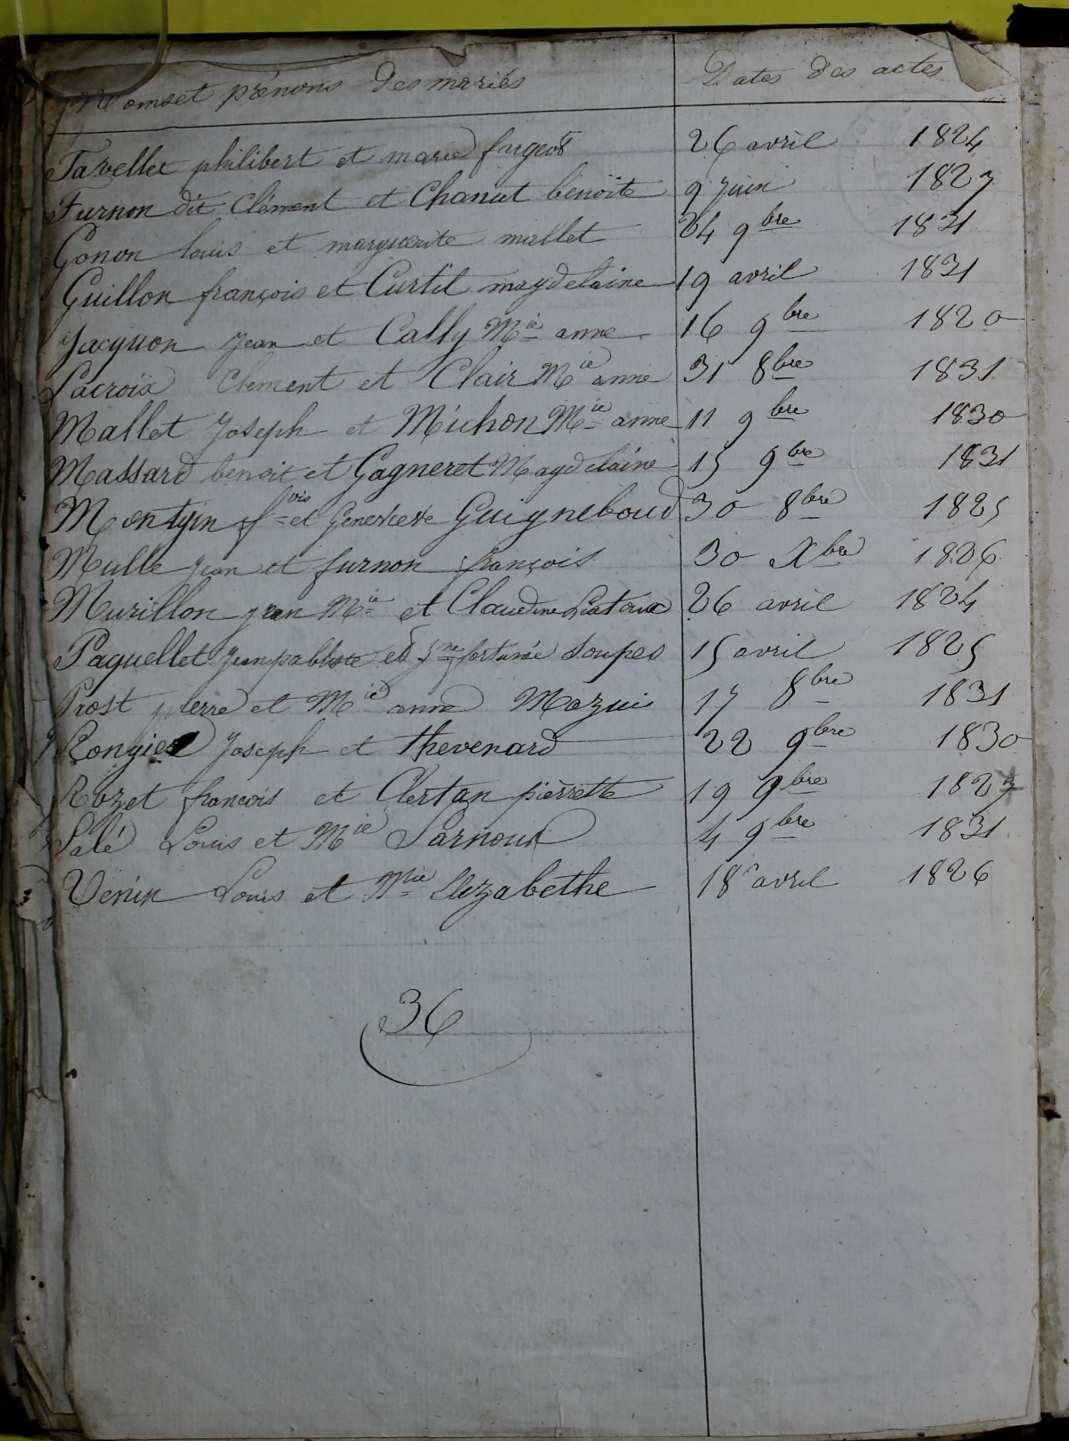 Noms et prénons des mariés Dates des actes
Favellet philibert et marie fargeot 26 avril 1824
Furnon dit Clément et Chanut benoite 9 juin 1827
Gonon louis et marguerite mallet 24 9bre 1831
Guillon françois et Curtil magdelaine 19 avril 1831
Jacquon jean et Cally Mie anne 16 9bre 1820
Lacroix Clement et Clair Mie anne 31 8bre 1831
Mallet Joseph et Michon Mie anne 11 9bre 1830
Massard benoit et Gagneret Magdelaine 15 9bre 1831
Montgin fois et Genevieve Guigneboud 30 8bre 1825
Mulle jean et furnon françois 30 Xbre 1826
Murillon jean Mie et Claudine 26 avril 1824
Paquellet jeanpabtiste et fortunée Soupes 15 avril 1825
Prost pierre et Mie anne Mazui 17 8bre 1831
Rongier Joseph et thevenard 22 9bre 1830
Rozet francois et Clertan pierrette 19 9bre 1823
Salé Louis et Mie Sarnoux 4 9bre 1831
Venin Louis et Mie Elizabethe 18 avril 1826
36